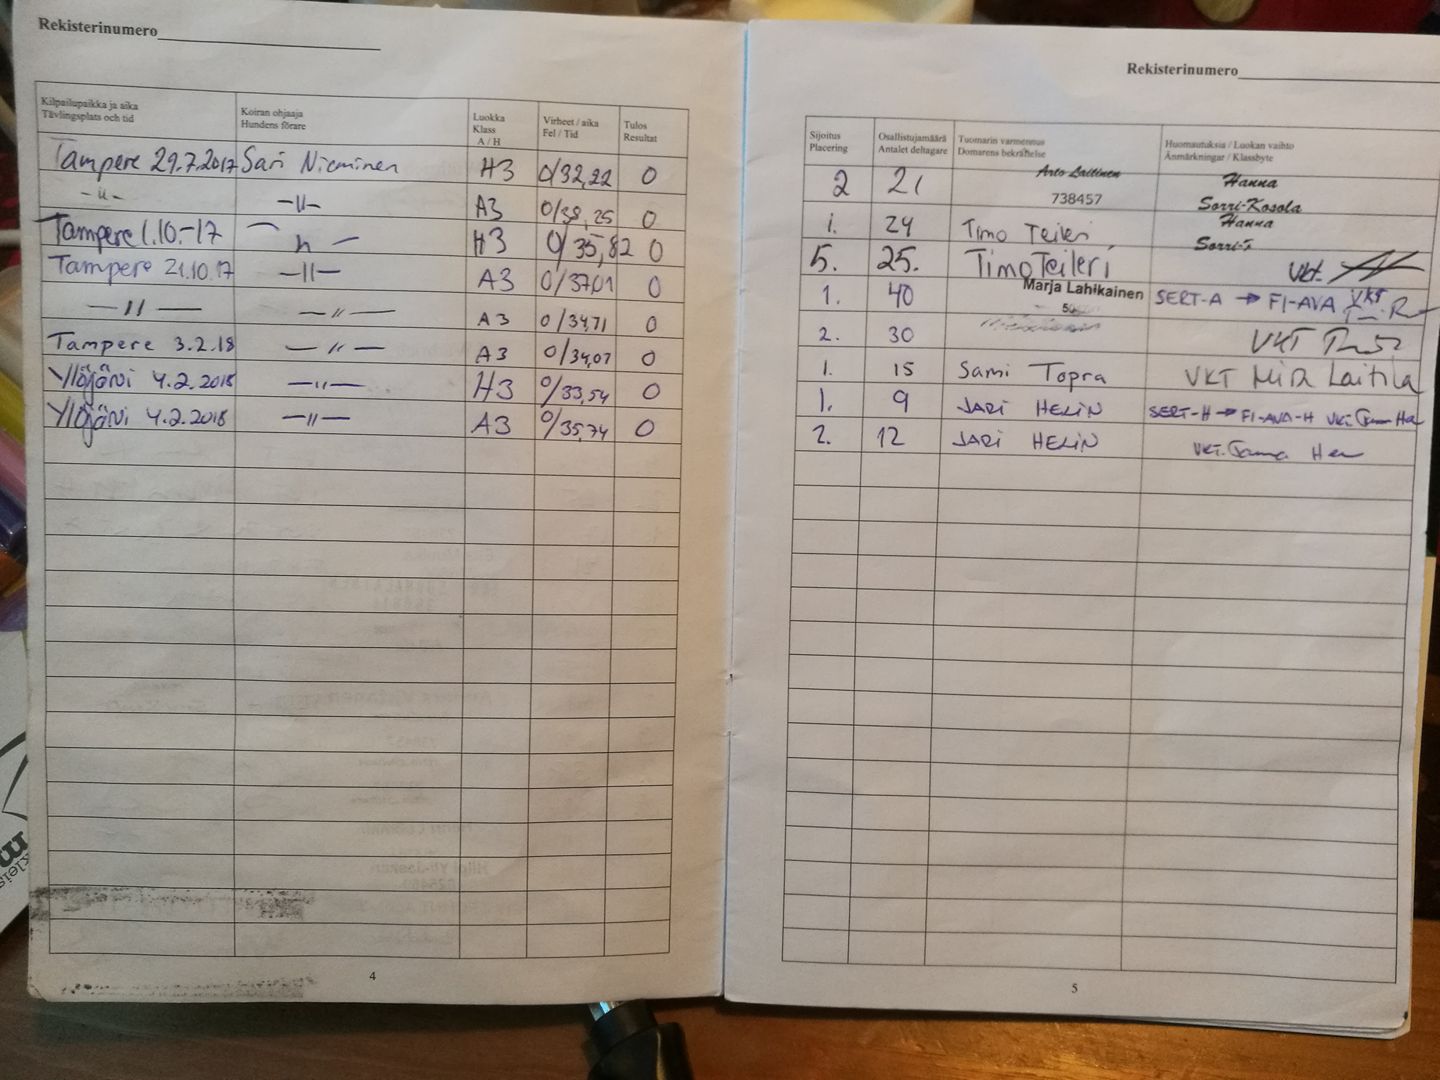 Rekisterinumero
Kilpailupaikka ja aika Koiran ohjaaja Luokka Virheet / aika Tulos
Tävlingsplats och tid Hundens förare Klass Fel / Tid Resultat
A / H
Tampere 29.7.2017 Sari Nieminen H3 0/32,22 0
-11- -11- A3 0/38,25 0
Tampere 1.10.-17 — 11 — H3 0/35,82 0
Tampere 21.10.17 -11- A3 0/37,01 0
-11- -11- A3 0/34,71 0
Tampere 3.2.18 -11- A3 0/34,07 0
Ylöjärvi 4.2.2018 -11- H3 0/33,54 0
Ylöjärvi 4.2.2018 -11- A3 0/35,74 0
4
Rekisterinumero
Sijoitus Osallistujamäärä Tuomarin varmennus Huomautuksia / Luokan vaihto
Placering Antalet deltagare Domarens bekräftelse Anmärkningar / Klassbyte
2 21 Arto Laitinen Hanna
738457 Sorri-Kosola
1. 24 Timo Teileri Hanna
Sorri-
5. 25. Timo Teileri VKT.
1. 40 Marja Lahikainen SERT-A → FI-AVA VKT
2. 30 VKT
1. 15 Sami Topra VKT Mira Laitila
1. 9 JARI HELIN SERT-H → FI-AVA-H VKT.
2. 12 JARI HELIN VKT.
5